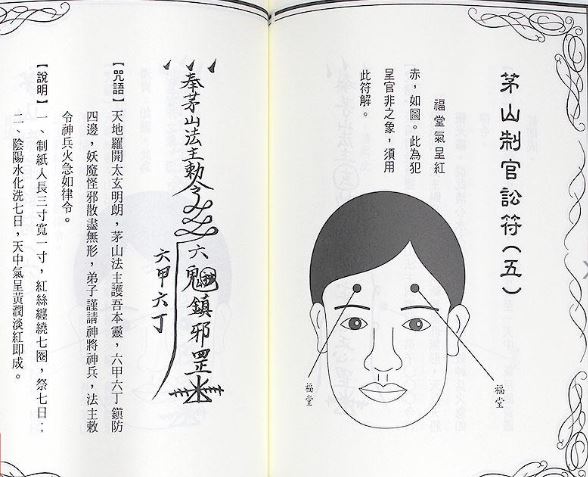 茅山制官訟符(五)
福堂氣呈紅
赤,如圖。此為犯
呈官非之象,須用
此符解。
福堂
福堂
奉茅山法主勅令
六
鬼鎮邪罡
六甲六丁
【咒語】天地羅開太玄明朗,茅山法主護吾本靈,六甲六丁鎮防
四邊,妖魔怪邪散盡無形,弟子謹請神將神兵,法主敕
令神兵火急如律令。
【說明】一、制紙人長三寸寬一寸,紅絲纏繞七圈,祭七日;
二、陰陽水化洗七日,天中氣呈黃潤淡紅即成。